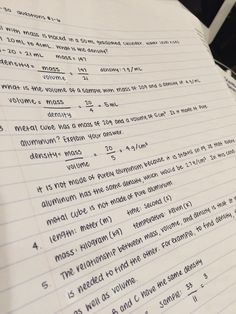 questions #1-6
mass is placed in a 50mL graduated cylinder. water level rises
20 mL to 41mL. What is the density?
41-20 = 21 mL mass = 147
density = mass 147 density = 7 g/mL
volume 21
What is the volume of a sample with mass of 20g and a density of 4 g/mL
volume = mass 20 = 5mL
density 4
3 metal cube has a mass of 20g and a volume of 5cm³. Is it made of pure
aluminum? Explain your answer.
density = mass 20 = 4 g/cm³
volume 5
It is not made of purely aluminum because
aluminum has the same density, which would be 2.7 g/cm³. In this case,
metal cube is not made of pure aluminum.
4. length: meter (m) time: second (s)
mass: kilogram (kg) temperature: kelvin (K)
5. The relationship between mass, volume, and density is that
is needed to find the other. For example, to find density,
as well as volume.
B and C have the same density
sample: 33 = 3
11